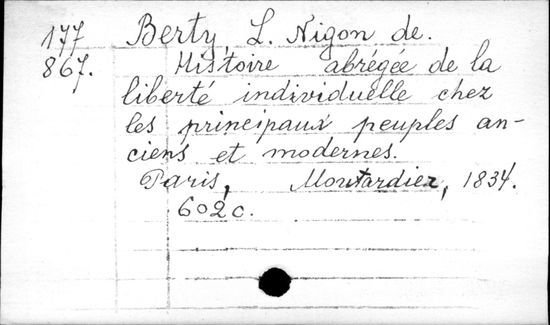 177 Berty, L. Nigon de.
867. Histoire abrégée de la
liberté individuelle chez
les principaux peuples an-
ciens et modernes.
Paris, Moutardier, 1834.
602 c.